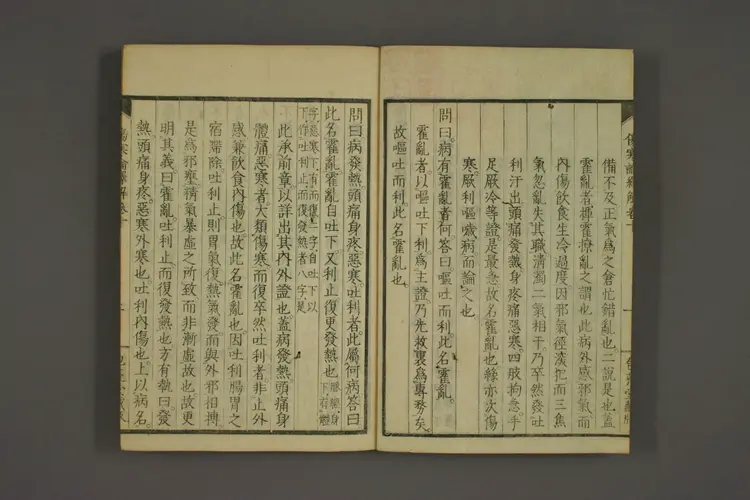 備不及正氣爲之倉忙錯亂也二說是也蓋
霍亂者揮霍撩亂之謂也此病外感邪氣而
內傷飲食生冷過度因邪氣徑凑犯而三焦
氣忽亂失其職淸濁二氣相干乃卒然發吐
利汗出頭痛發熱身疼痛惡寒四肢拘急手
足厥冷等證是最急故名霍亂也繇亦次傷
寒厥利嘔噦病而論之也
問曰病有霍亂者何答曰嘔吐而利此名霍亂
霍亂者以嘔吐下利爲主證乃先救裏爲專務矣
故嘔吐而利此名霍亂也
問曰病發熱頭痛身疼惡寒吐利者此屬何病答曰
此名霍亂霍亂自吐下又利止復更發熱也
字惡寒下有而復二字自吐下以
下作吐利止而復發熱者八字是
此承前章以詳出其內外證也蓋病發熱頭痛身
體痛惡寒者大類傷寒而復卒然吐利者非止外
感兼飲食內傷也故此名霍亂也因吐利腸胃之
宿滯除吐利止則胃氣復熱氣發而與外邪相搏
是爲邪壅精氣暴虛之所致而非漸虛故也故更
明其義曰霍亂吐利止而復發熱也方有執曰發
熱頭痛身疼惡寒外寒也吐利內傷也上以病名